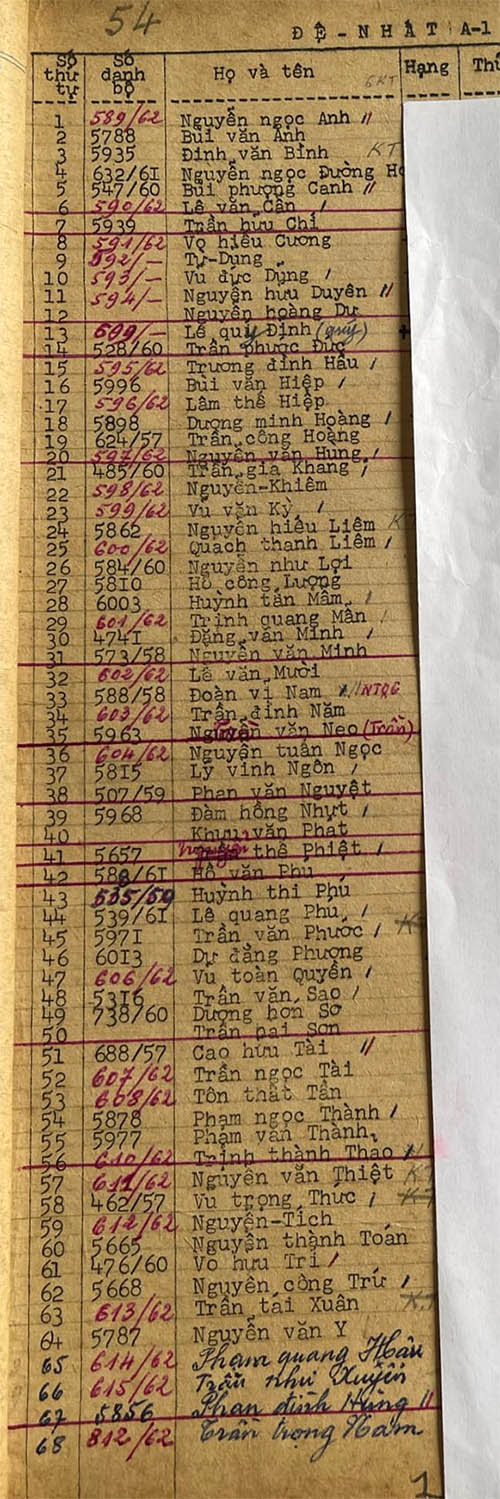 54
ĐỆ-NHẤT A-1
Số thứ tự Số danh bộ Họ và tên 6KT Hạng Thứ
1 589/62 Nguyễn ngọc Anh //
2 5788 Bùi văn Ảnh
3 5935 Đinh văn Bình KT
4 632/61 Nguyễn ngọc Đường
5 547/60 Bùi phượng Canh //
6 590/62 Lê văn Cần /
7 5939 Trần hữu Chí
8 591/62 Vọ hiếu Cương
9 592/— Từ-Dụng
10 593/— Vũ đức Dụng /
11 594/— Nguyễn hữu Duyên //
12 Nguyễn hoàng Dư
13 /— Lê quý Định (quý)
14 528/60 Trần phước Đức
15 595/62 Trương đình Hầu /
16 5996 Bùi văn Hiệp /
17 596/62 Lâm thế Hiệp
18 5898 Dương minh Hoàng /
19 624/57 Trần công Hoàng
20 597/62 Nguyễn văn Hưng /
21 485/60 Trần gia Khang /
22 598/62 Nguyễn-Khiêm
23 599/62 Vũ văn Kỳ /
24 5862 Nguyễn hiếu Liêm K
25 600/62 Quách thanh Liêm /
26 584/60 Nguyễn như Lợi
27 5810 Hồ công Lượng
28 6003 Huỳnh tấn Mẫm /
29 601/62 Trịnh quang Mân /
30 4741 Đặng văn Minh /
31 573/58 Nguyễn văn Minh
32 602/62 Lê văn Mười
33 588/58 Đoàn vị Nam // NTQG
34 603/62 Trần đình Năm
35 5963 văn Neo (Trần)
36 604/62 Nguyễn tuấn Ngọc
37 5815 Lý vĩnh Ngôn /
38 507/59 Phan văn Nguyệt
39 5968 Đàm hồng Nhựt /
40 Khưu văn Phát
41 5657 Nguyễn thế Phiệt /
42 588/61 Hồ văn Phú
43 535/59 Huỳnh thi Phú
44 539/61 Lê quang Phú /
45 5971 Trần văn Phước /
46 6013 Dư đằng Phượng
47 606/62 Vũ toàn Quyền /
48 5316 Trần văn Sao /
49 738/60 Dương hơn Sơ
50 Trần Sơn
51 688/57 Cao hữu Tài //
52 607/62 Trần ngọc Tài
53 608/62 Tôn thất Tần
54 5878 Phạm ngọc Thành /
55 5977 Phạm văn Thành
56 610/62 Trịnh thành Thao
57 611/62 Nguyễn văn Thiệt KT
58 462/57 Vũ trọng Thức / KT
59 612/62 Nguyễn-Tích
60 5665 Nguyễn thành Toán
61 476/60 Võ hữu Trí /
62 5668 Nguyễn công Trứ /
63 613/62 Trần tái Xuân KT
64 5787 Nguyễn văn Y
65 614/62 Phạm quang Hậu
66 615/62 Trần như Xuyên
67 5856 Phan đình Hùng //
68 812/62 Trần trọng
1